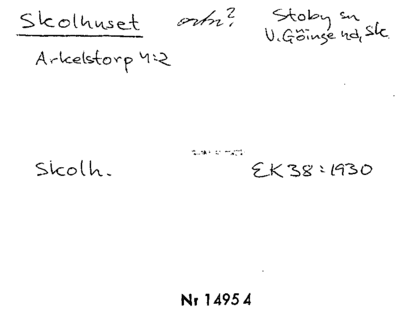 Skolhuset ortn? Stoby sn
V. Göinge hd, Sk.
Arkelstorp 4:2
Skolh. EK 38:1930
Nr 14954